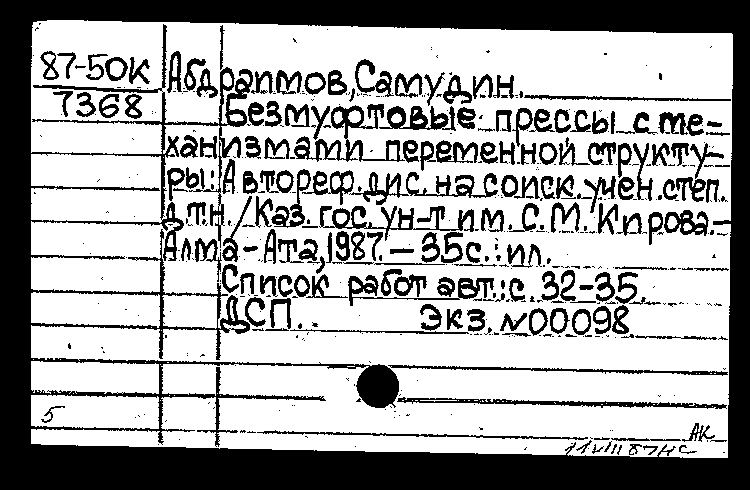 87-50к Абдраимов, Самудин.
7368 Безмуфтовые прессы с ме-
ханизмами переменной структу-
ры: Автореф. дис. на соиск. учен. степ.
д.т.н. / Каз. гос. ун-т им. С. М. Кирова.-
Алма-Ата, 1987. - 35с. : ил.
Список работ авт.: с. 32-35.
ДСП. Экз. №00098
5
АК
11 VIII 87